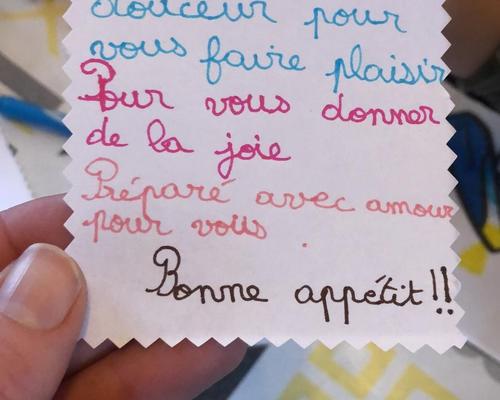 douceur pour
vous faire plaisir
Pour vous donner
de la joie
Préparé avec amour
pour vous
Bonne appétit!!